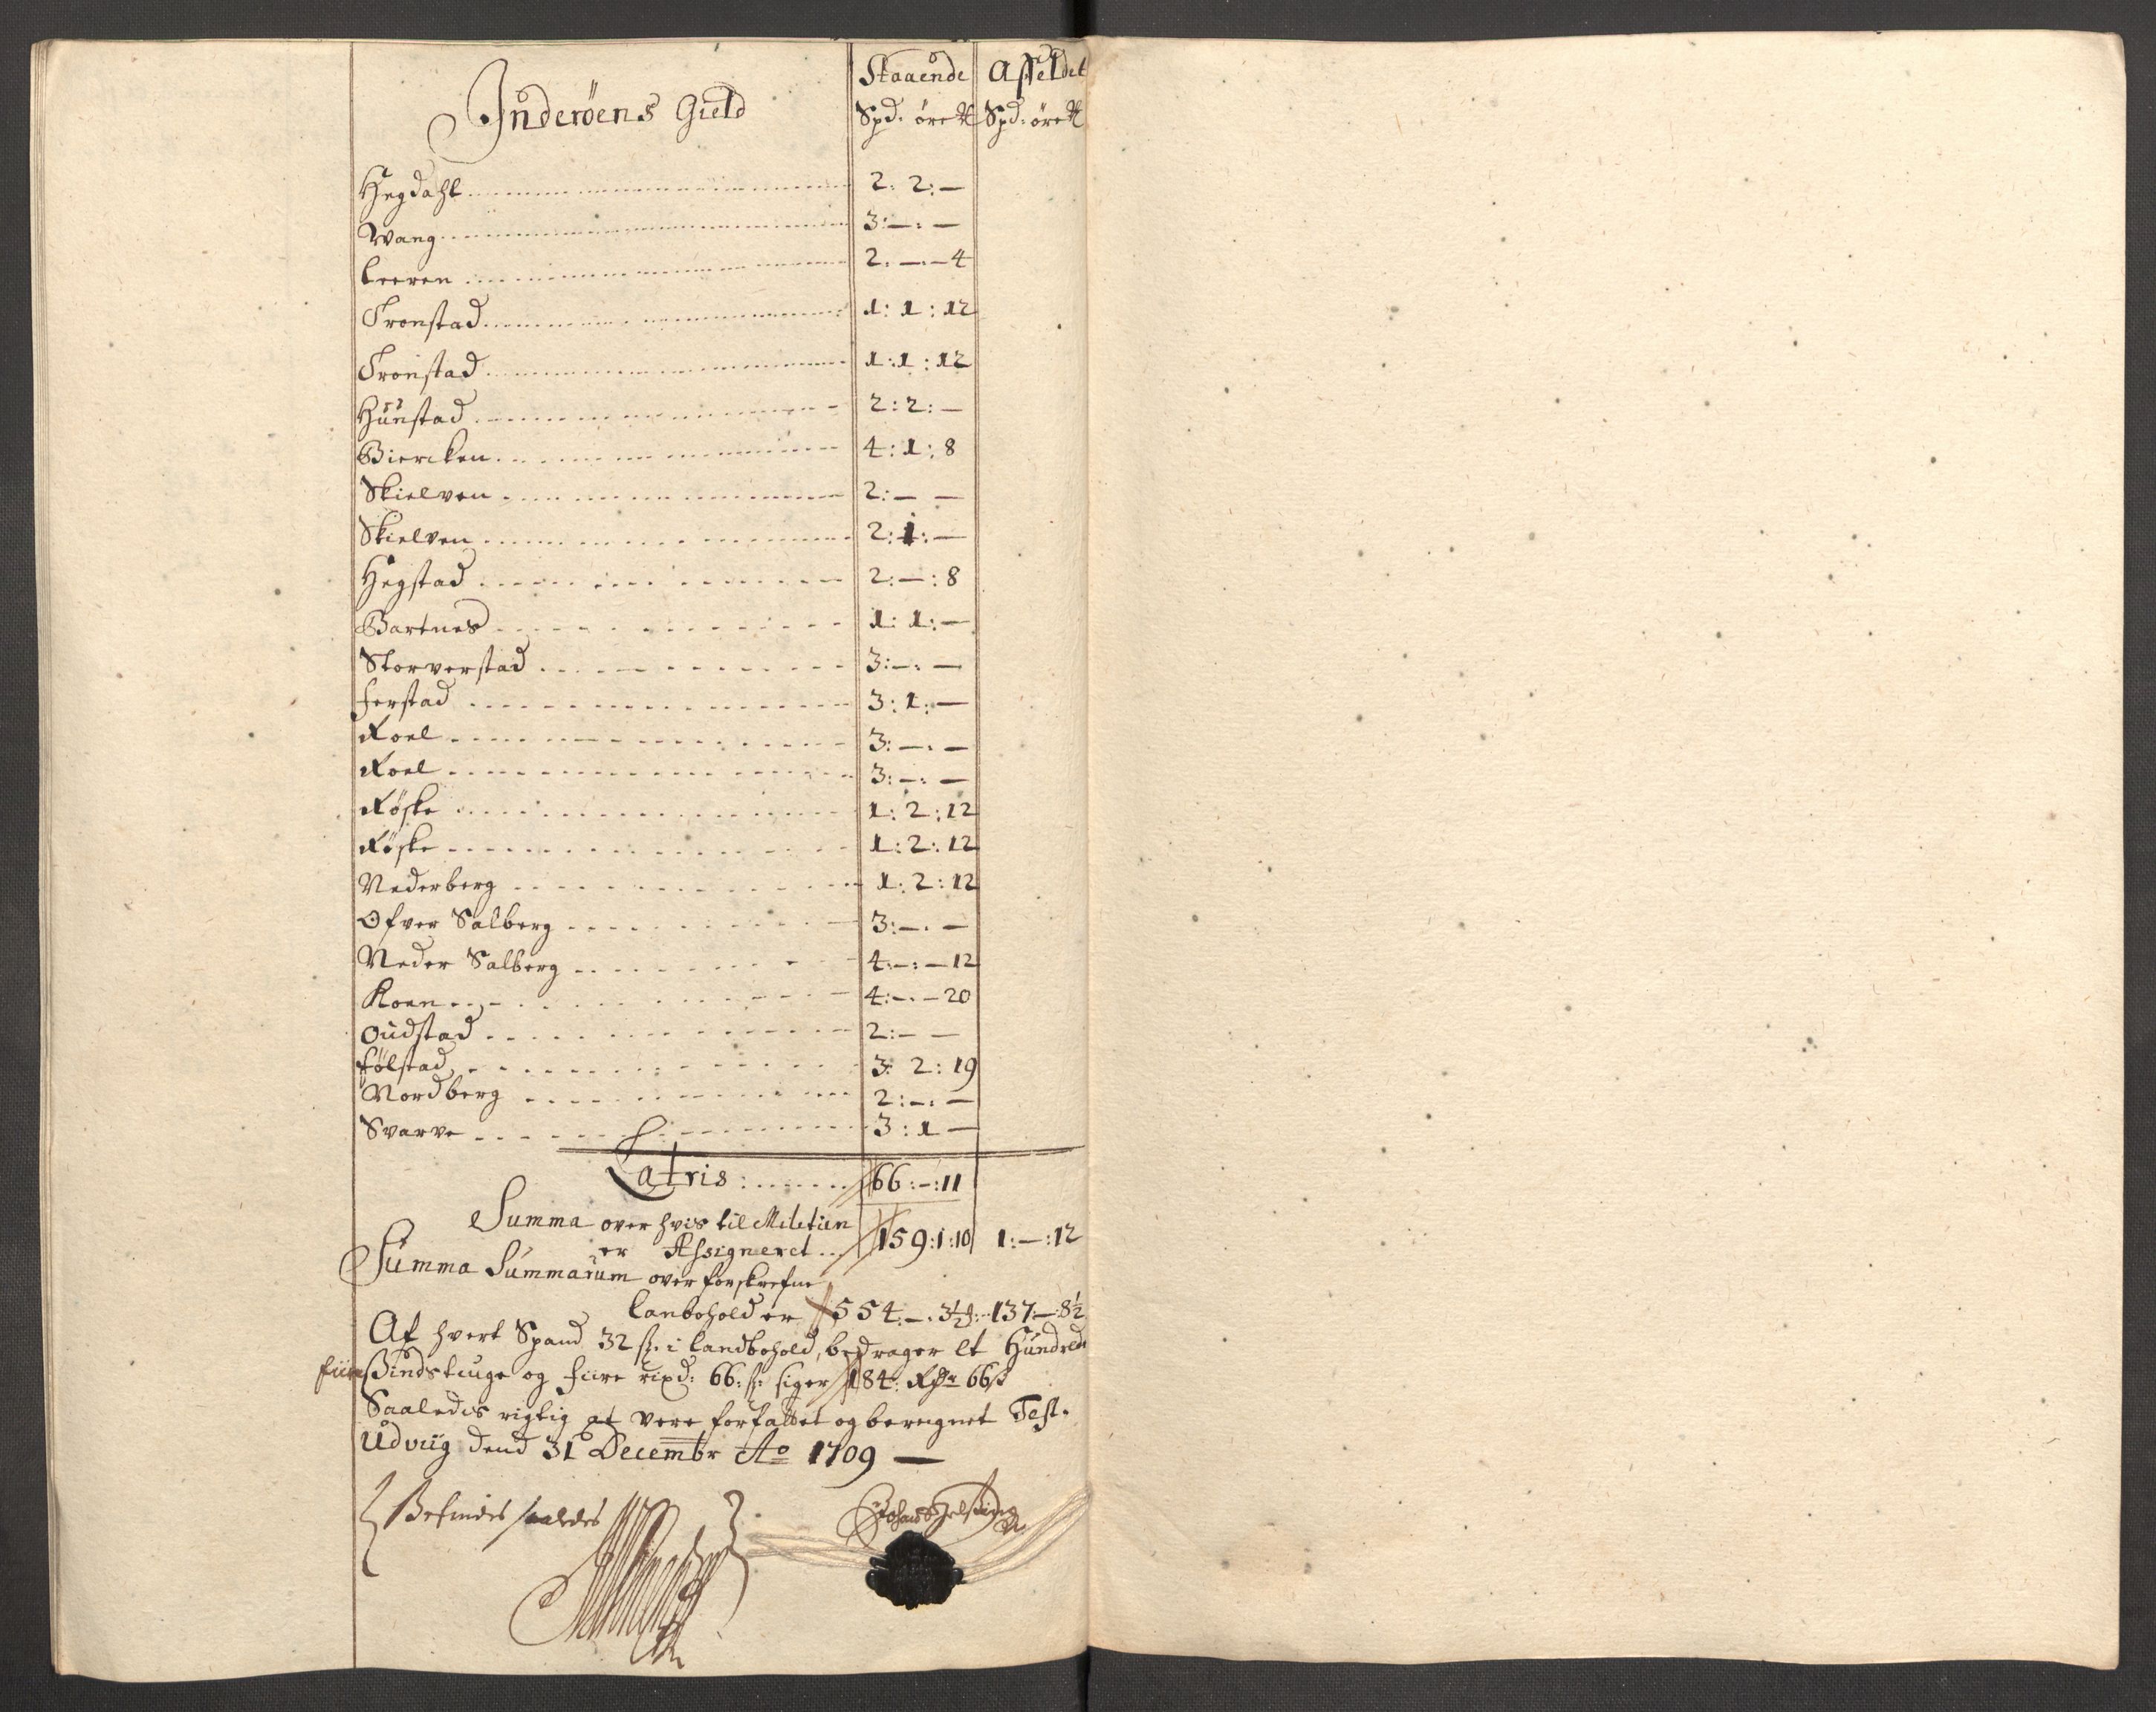 Staaende Affeldet
Inderöens Gield
Spd: öre ℔ Spd: öre ℔
Hegdahl 2: 2: —
Wang 3: —: —
Leeren 2. —. — 4
Tronstad 1: 1: 12
Tronstad 1: 1: 12
Hunstad 2: 2: —
Biercken 4: 1: 8
Skielven 2: — —
Skielven 2: 1: —
Hegstad 2: —: 8
Bartnes 1: 1: —
Storverstad 3: —: —
Ferstad 3: 1: —
Roel 3: —: —
Roel 3: —: —
Røske 1: 2: 12
Røske 1: 2: 12
Nederberg 1: 2: 12
Ofver Salberg 3: —. —
Neder Salberg 4: —: — 12
Koen 4: —. — 20
Oudstad 2: — —
Følstad 3: 2: 19
Nordberg 2: —: —
Svarve 3: 1 —
Latris: 66: —: 11
Summa over hvis til Militien
er Assigneret 159: 1: 10 1: —: 12
Summa Summarum over forskrefne
Landbohold er 554. —. 3½ 137: —: 8½
Af hvert Spand 32 ß: i landbohold, bedrager et Hundrede
fiiresindstiuge og fiire rixd: 66: ß: siger 184: Rdr 66 ß
Saaledis rigtig at vere forfattet og beregnet Test.
Udviig dend 31 Decembr Ao 1709 —
Befindes saaledes